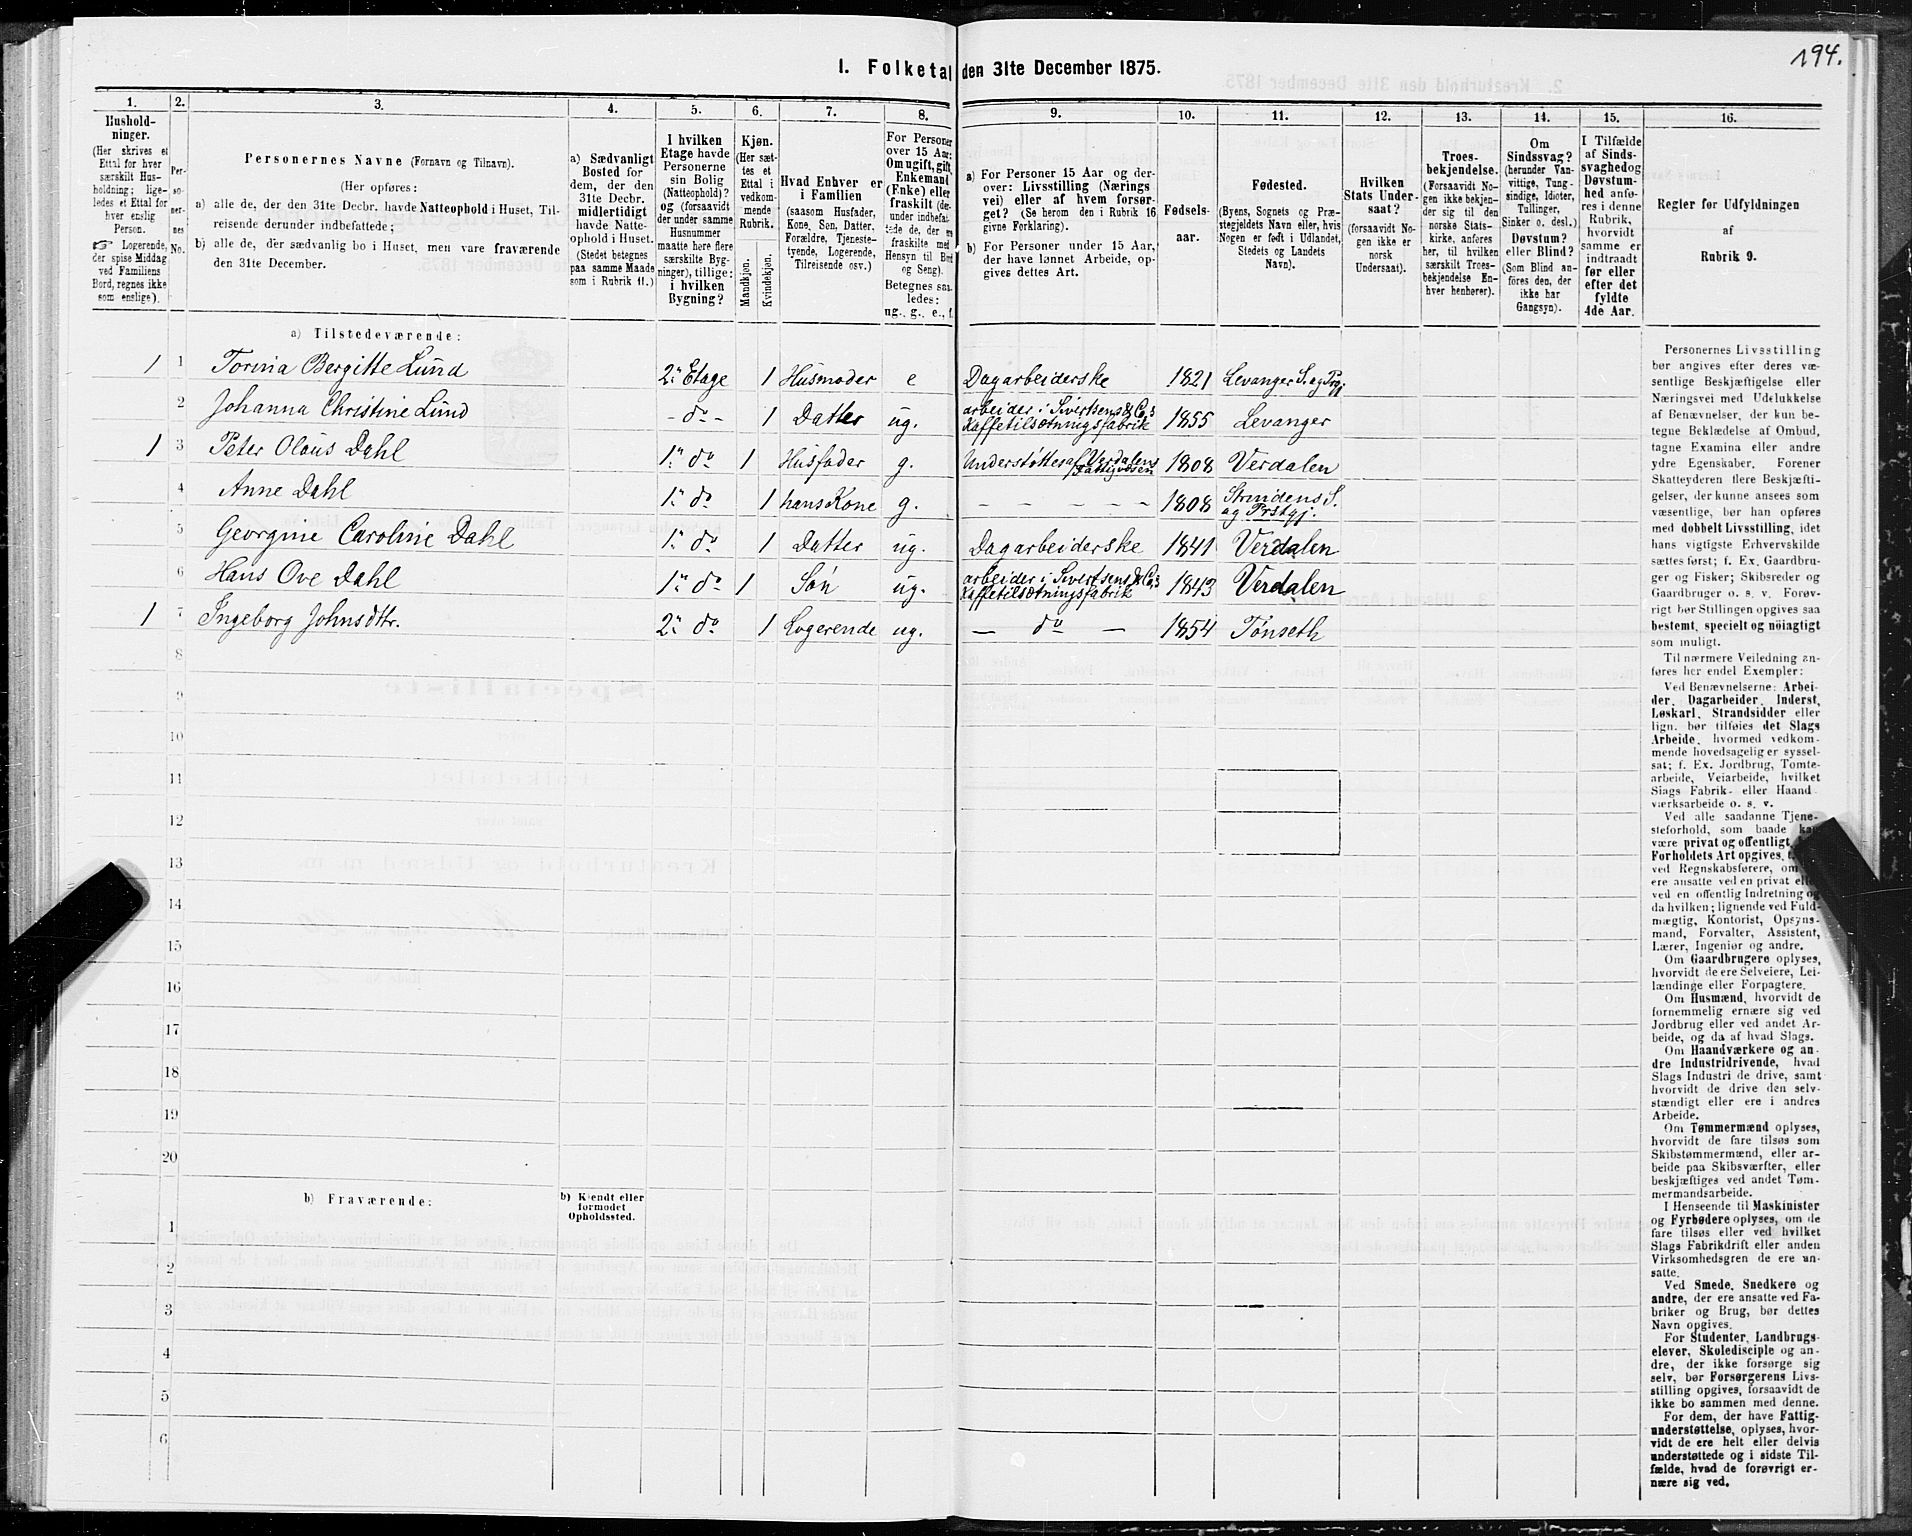 194.
I. Folketal den 31te December 1875.
1. 2. 3. 4. 5. 6. 7. 8. 9. 10. 11. 12. 13. 14. 15. 16.
Hushold-
ninger.
(Her skrives et
Ettal for hver
særskilt Hus-
holdning; lige-
ledes et Ettal for
hver enslig
Person.
☞ Logerende,
der spise Middag
ved Familiens
Bord, regnes ikke
som enslige).
Per-
so-
ner-
nes
No.
Personernes Navne (Fornavn og Tilnavn).
(Her opføres:
a) alle de, der den 31te Decbr. havde Natteophold i Huset, Til-
reisende derunder indbefattede;
b) alle de, der sædvanlig bo i Huset, men vare fraværende
den 31te December.
a) Sædvanligt
Bosted for
dem, der den
31te Decbr.
midlertidigt
havde Natte-
ophold i Huset.
(Stedet betegnes
paa samme Maade
som i Rubrik 11.)
I hvilken
Etage havde
Personerne
sin Bolig
(Natteophold)?
og (forsaavidt
der under samme
Husnummer
maatte here flere
særskilte Byg-
ninger), tillige:
i hvilken
Bygning?
Kjøn.
(Her sæt-
tes et
Ettal i
vedkom-
mende
Rubrik.)
Mandkjøn.
Kvindekjøn.
Hvad Enhver er
i Familien
(saasom Husfader,
Kone, Søn, Datter,
Forældre, Tjeneste-
tyende, Logerende,
Tilreisende osv.)
For Personer
over 15 Aar:
Om ugift, gift,
Enkemand
(Enke) eller
fraskilt (der-
under indbefat-
tede de, der ere
fraskilte med
Hensyn til Bord
og Seng).
Betegnes saa-
ledes:
ug., g., e., f.
a) For Personer 15 Aar og der-
over: Livsstilling (Nærings
vei) eller af hvem forsør-
get? (Se herom den i Rubrik 16
givne Forklaring).
b) For Personer under 15 Aar,
der have lønnet Arbeide, op-
gives dettes Art.
Fødsels-
aar.
Fødested.
(Byens, Sognets og Præ-
stegjeldets Navn eller, hvis
Nogen er født i Udlandet,
Stedets og Landets
Navn).
Hvilken
Stats Under-
saat?
(forsaavidt No-
gen ikke er
norsk
Undersaat).
Troes-
bekjendelse.
(Forsaavidt No-
gen ikke bekjen-
der sig til den
norske Stats-
kirke, anføres
her, til hvilken
særskilt Troes-
bekjendelse En-
hver henhører).
Om
Sindssvag?
(herunder Van-
vittige, Tung-
sindige, Idioter,
Tullinger,
Sinker o. desl.)
Døvstum?
eller Blind?
(Som Blind an-
føres den, der
ikke har
Gangsyn).
I Tilfælde
af Sinds-
svaghed og
Døvstum-
hed anfø-
res i denne
Rubrik,
hvorvidt
samme er
indtraadt
før eller
efter det
fyldte
4de Aar.
Regler for Udfyldningen
af
Rubrik 9.
a) Tilstedeværende:
1 1 Torina Bergitte Lund 2n Etage 1 Husmoder e Dagarbeiderske 1821 Levanger S. og Prgj
2 Johanna Christine Lund - do - 1 Datter ug. arbeider i Sivertsens & Co,s Kaffetilsætningsfabrik 1855 Levanger
1 3 Peter Olaus Dahl 1n do 1 Husfader g. Understøttes af Verdalens Fattigvæsen 1808 Verdalen
4 Anne Dahl 1n do 1 hans Kone g. - - - - - 1808 Strindens S. og Prstgj.
5 Georgine Caroline Dahl 1n do 1 Datter ug. Dagarbeiderske 1841 Verdalen
6 Hans Ove Dahl 1n do 1 Søn ug. arbeider i Sivertsens & Co,s Kaffetilsætningsfabrik 1843 Verdalen
1 7 Ingeborg Johnsdttr. 2n do 1 Logerende ug. - do - 1854 Tønseth
8
9
10
11
12
13
14
15
16
17
18
19
20
b) Fraværende:
b) Kjendt eller
formodet
Opholdssted.
1
2
3
4
5
6
Personernes Livsstilling
bør angives efter deres væ-
sentlige Beskjæftigelse eller
Næringsvei med Udelukkelse
af Benævnelser, der kun be-
tegne Beklædelse af Ombud,
tagne Examina eller andre
ydre Egenskaber. Forener
Skatteyderen flere Beskjæfti-
gelser, der kunne ansees som
væsentlige, bør han opføres
med dobbelt Livsstilling, idet
hans vigtigste Erhvervskilde
sættes først; f. Ex. Gaardbru-
ger og Fisker; Skibsreder og
Gaardbruger o. s. v. Forøv-
rigt bør Stillingen opgives saa
bestemt, specielt og nöiagtigt
som muligt.
Til nærmere Veiledning an-
føres her endel Exempler:
Ved Benævnelserne: Arbei-
der, Dagarbeider, Inderst,
Løskarl, Strandsidder eller
lign. bør tilføies det Slags
Arbeide, hvormed vedkom-
mende hovedsagelig er syssel-
sat; f. Ex. Jordbrug, Tomte-
arbeide, Veiarbeide, hvilket
Slags Fabrik- eller Haand
værksarbeide o. s. v.
Ved alle saadanne Tjene-
steforhold, som baade kan
være privat og offentligt,
Forholdets Art opgives,
ved Regnskabsførere, om
ere ansatte ved en privat eller
ved en offentlig Indretning og
da hvilken; lignende ved Fuld-
mægtig, Kontorist, Opsyns-
mand, Forvalter, Assistent,
Lærer, Ingeniør og andre.
Om Gaardbrugere oplyses,
hvorvidt de ere Selveiere, Lei-
lændinge eller Forpagtere.
Om Husmænd, hvorvidt de
fornemmelig ernære sig ved
Jordbrug eller ved andet Ar-
beide, og da af hvad Slags.
Om Haandværkere og an-
dre Industridrivende, hvad
Slags Industri de drive, samt
hvorvidt de drive den selv-
stændigt eller ere i andres
Arbeide.
Om Tømmermænd oplyses,
hvorvidt de fare tilsøs som
Skibstømmermænd, eller ar-
beide paa Skibsværfter, eller
beskjæftiges ved andet Tøm-
mermandsarbeide.
I Henseende til Maskinister
og Fyrbødere oplyses, om de
fare tilsøs eller ved hvilket
Slags Fabrikdrift eller anden
Virksomhedsgren de ere an-
satte.
Ved Smede, Snedkere og
andre, der ere ansatte ved Fa-
briker og Brug, bør dettes
Navn opgives.
For Studenter, Landbrugs-
elever, Skoledisciple og an-
dre, der ikke forsørge sig
selv, bør Forsørgerens Livs-
stilling opgives, forsaavidt de
ikke bo sammen med denne.
For dem, der have Fattig-
understøttelse, oplyses, hvor-
vidt de ere helt eller delvis
understøttede og i sidste Til-
fælde, hvad de forøvrigt er-
nære sig ved.